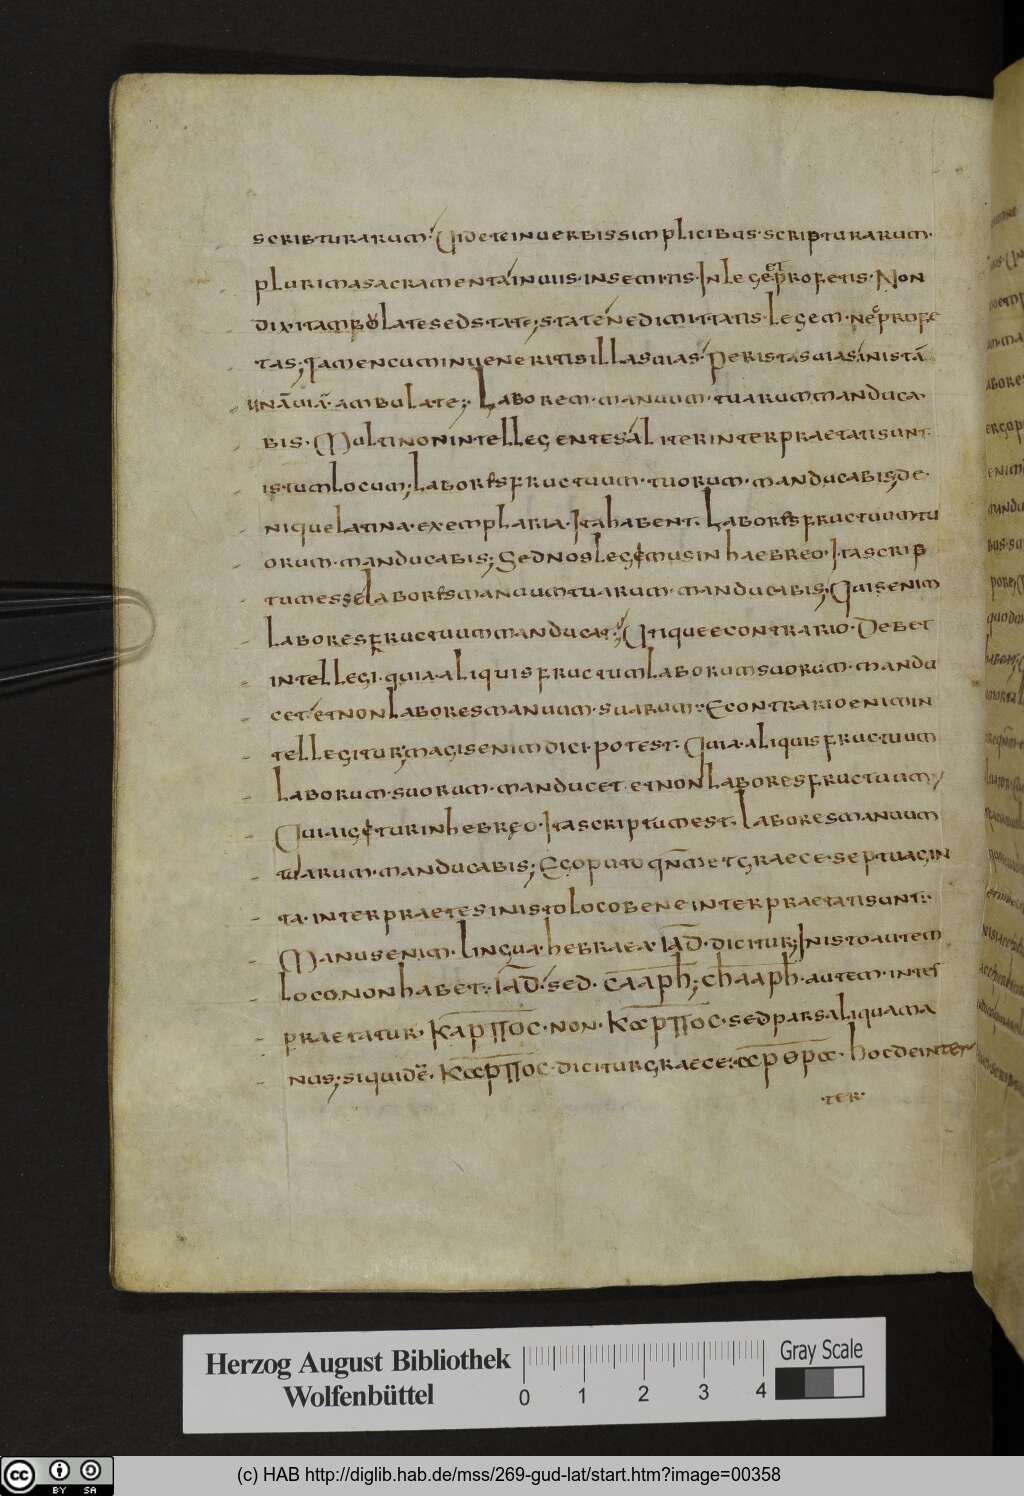 scribturarum· Videte in uerbis simplicibus· scripturarum·
plurima sacramenta in uiis· in semitis· In lege et profetis· Non
dixit ambulate sed state; state ne dimittatis· legem· nec profe
tas; Tamen cum inueneritis illas uias· per istas uias in istā
unā uiā· ambulate;· Laborem· manuum· tuarum manduca·
bis· Multi non intellegentes aliter interpraetati sunt
istum locum; labores fructuum· tuorum· manducabis; de·
nique latina· exemplaria· Ita habent· Labores fructuum tu
orum· manducabis; Sed nos legimus in haebreo· Ita scrip
tum esse labores manuum tuarum· manducabis; Quis enim
labores fructuum manducat; Atique econtrario· Debet
intellegi· quia· aliquis fructum laborum suorum· mandu
cet· et non labores manuum· suarum· Econtrario enim in
tellegitur; magis enim dici· potest· Quia· aliquis fructuum
laborum· suorum· manducet· et non labores fructuum;
Quia igitur in hebreo· Ita scriptum est· labores manuum
tuarum· manducabis; Ego puto qnm̄ et graece· septuagin
ta· interpraetes in isto loco bene interpraetati sunt·
Manus enim· lingua· hebraea· IAD̄· dicitur; In isto autem
loco· non habet· IAD̄· sed· CAAPH; CHAAPH· autem· inter
praetatur· ΚΑΡΠΟC· non· ΚΑΡΠΟC· sed pars aliqua ma
nus; siquidē· ΚΑΡΠΟC· dicitur graece· ΑΡΘΡΑ· hoc de inter
·ter·
Herzog August Bibliothek
Wolfenbüttel
0 1 2 3 4
Gray Scale
cc BY SA
(c) HAB http://diglib.hab.de/mss/269-gud-lat/start.htm?image=00358